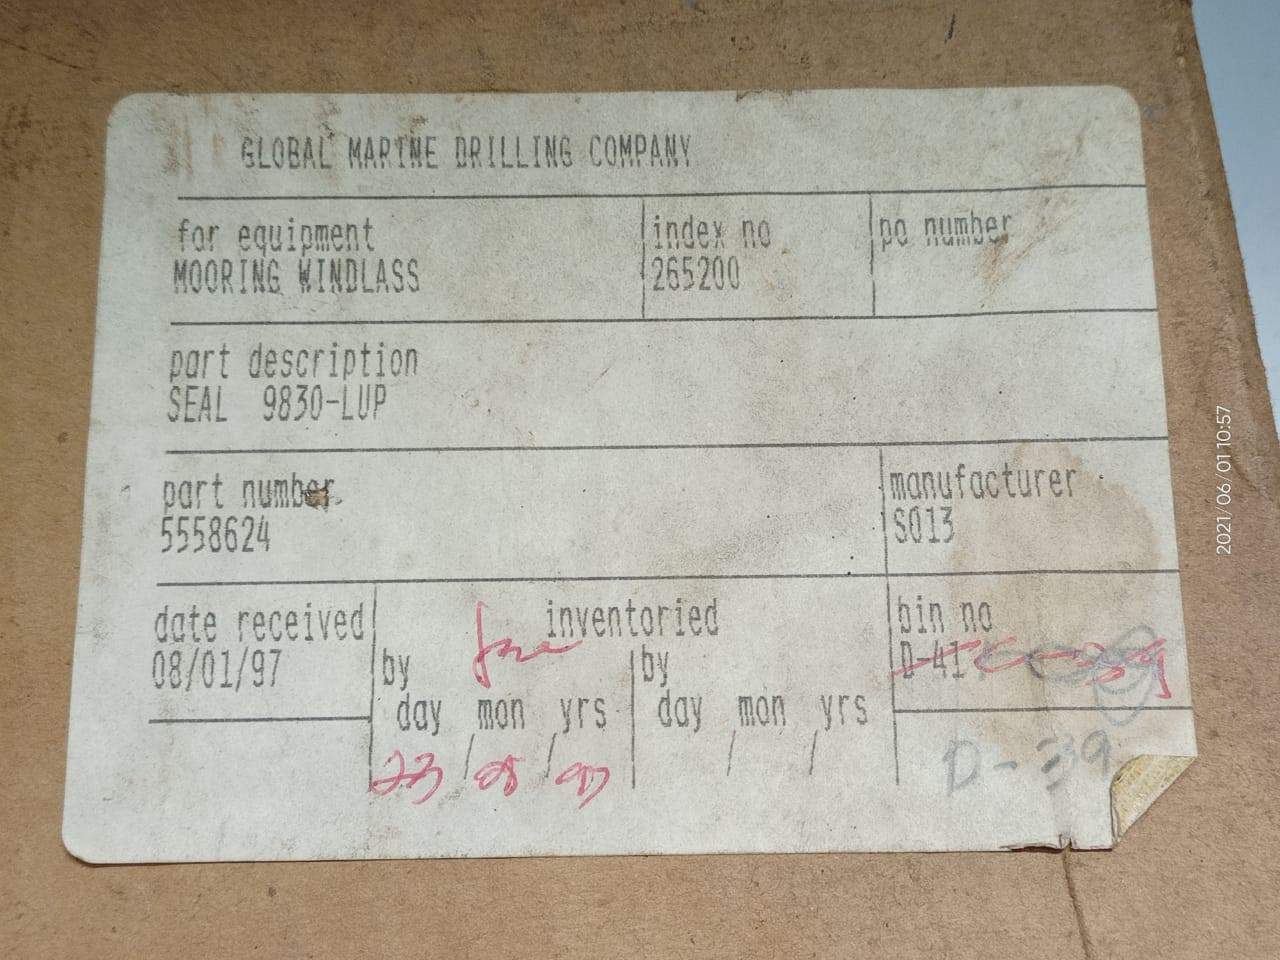 GLOBAL MARINE DRILLING COMPANY
for equipment
MOORING WINDLASS
index no
265200
po number
part description
SEAL 9830-LUP
part number
5558624
manufacturer
S013
date received
08/01/97
inventoried
by
by
day mon yrs
day mon yrs
23 / 08 / 97
/ /
bin no
D-41
D-39
2021/06/01 10:57